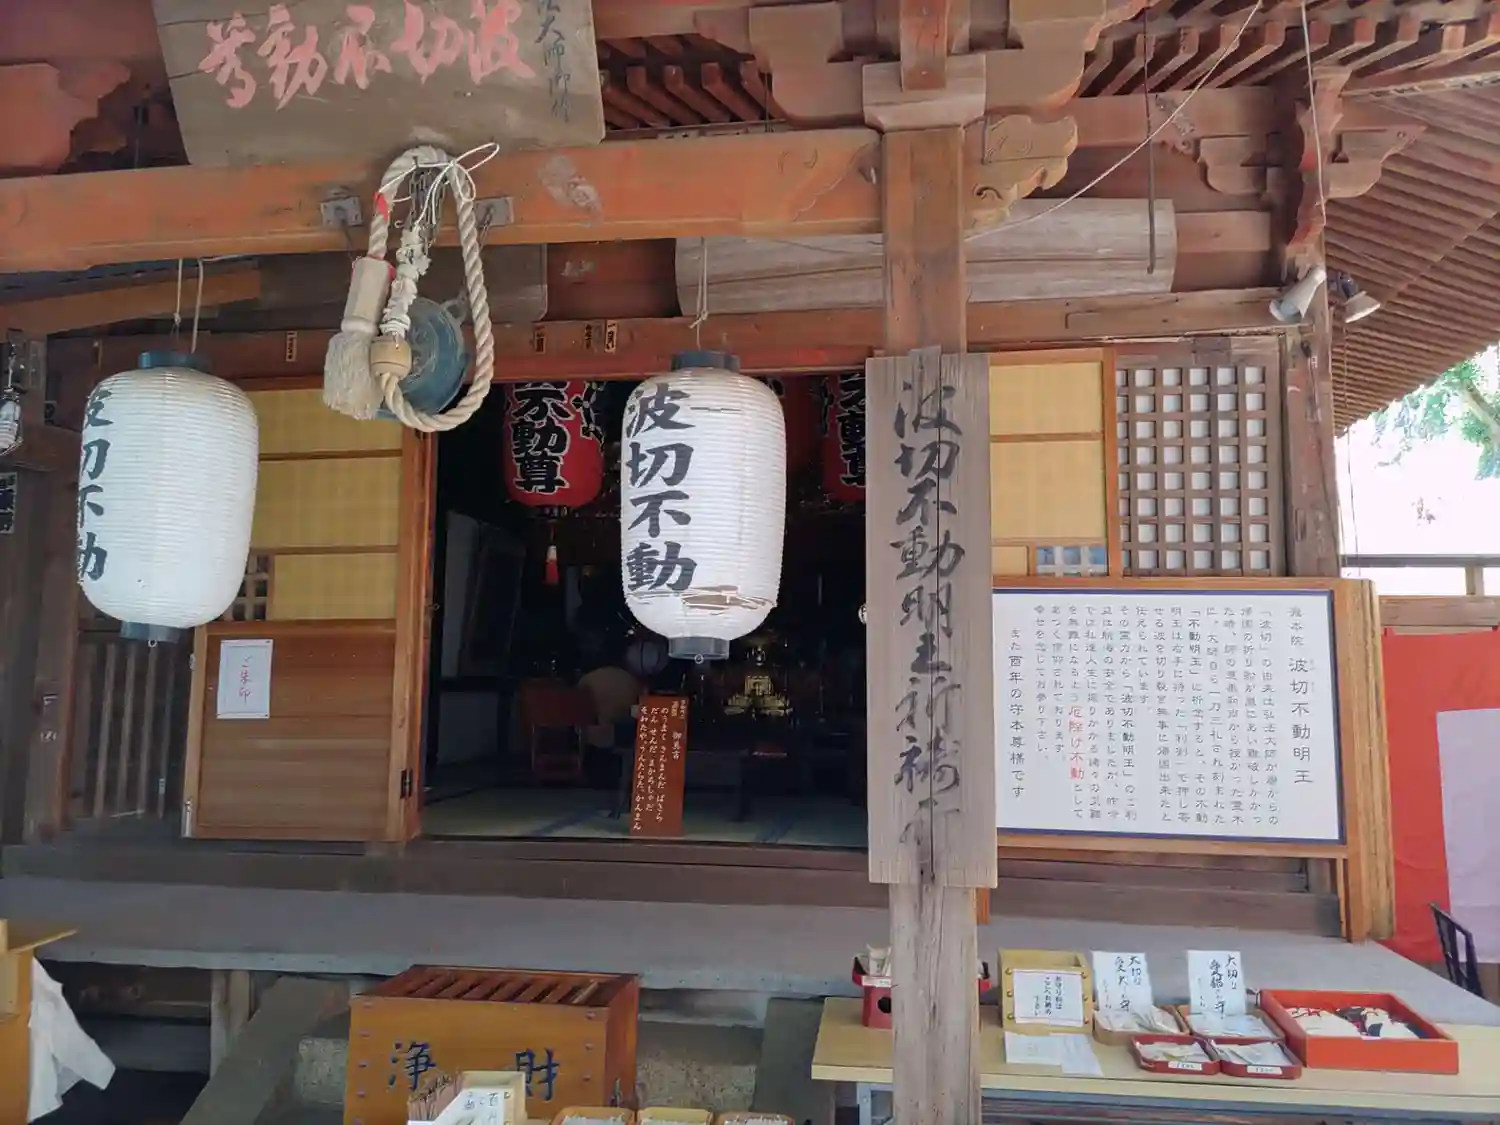 波切不動尊
大師御作
波切不動
波切不動
不動尊
不動尊
波切不動明王祈祷所
ご朱印
御真言
のうまく さんまんだ ばさら
だん せんだ まかろしゃだ
そわたや うんたらた かんまん
波切不動明王
「波切」の由来は弘法大師が唐からの
帰国の折り船が嵐にあい難破しかかっ
た時、師の恵果和尚から授かった霊木
に、大師自ら一刀三礼され刻まれた
「不動明王」に祈念すると、その不動
明王は右手に持った「利剣」で押し寄
せる波を切り裂き無事に帰国出来たと
伝えられています。
その霊力から「波切不動明王」のご利
益は航海の安全でありましたが、昨今
では私達人生に降りかかる諸々の災難
を無難になるよう厄除け不動として
あつく信仰されております。
また酉年の守本尊様です
幸せを念じてお参り下さい。
浄
財